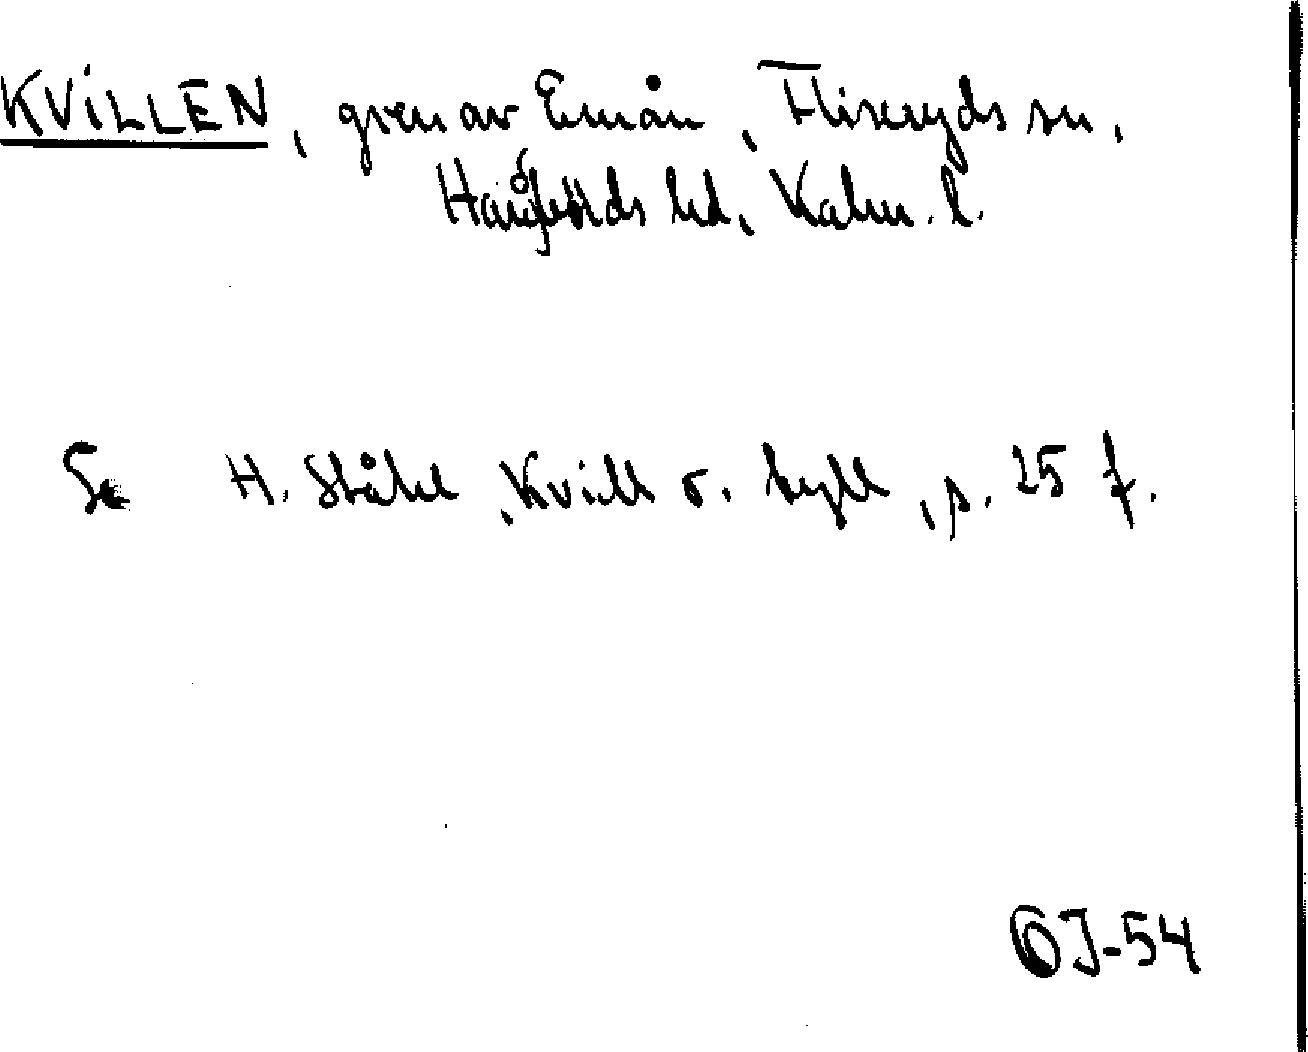 KVILLEN, gren av Emån, Fliseryds sn,
Handbörds hd, Kalm. l.
Se H. Ståhl, Kvill o. tyll, s. 25 f.
OJ-54